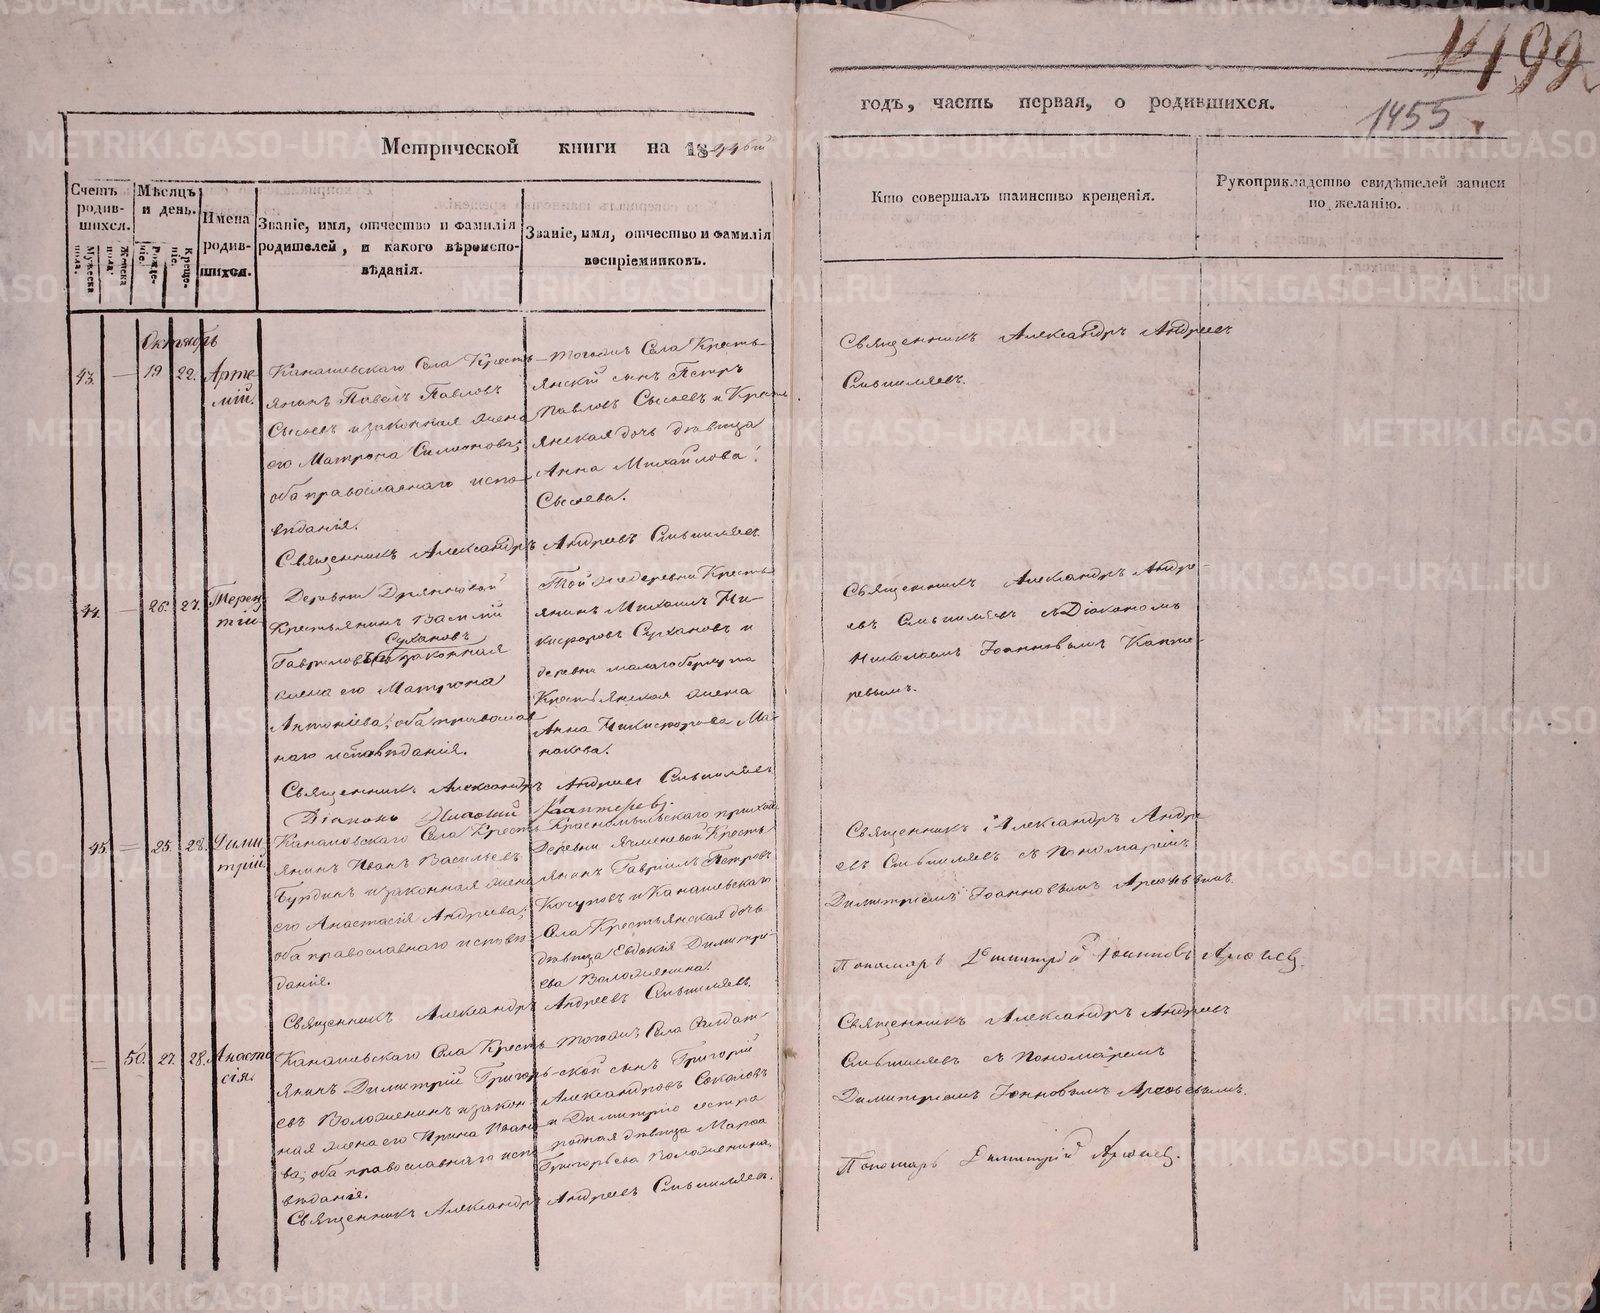 1499
1455
Метрической книги на 1844ый
годъ, часть первая, о родившихся.
Счетъ родив-шихся.
Мужеска пола.
Женска пола.
Мѣсяцъ и день.
Рожде-ніе.
Креще-ніе.
Имена родив-шихся.
Званіе, имя, отчество и фамилія
родителей, и какого вѣроиспо-
вѣданія.
Званіе, имя, отчество и фамилія
воспріемниковъ.
Кто совершалъ таинство крещенія.
Рукоприкладство свидѣтелей записи
по желанію.
Октябрь
43. — 19 22. Арте-
мій.
Канашевскаго Села Кресть-
янинъ Павелъ Павловъ
Сысоевъ и законная жена
его Матрона Симеонова;
оба православнаго испо-
вѣданія.
Тогоже Села Кресть-
янскій сынъ Петръ
Павловъ Сысоевъ и Кресть-
янская дочь дѣвица
Анна Михайлова
Сысоева.
Священникъ Александръ Андреевъ
Священникъ Александръ Андреевъ
44. — 26. 27. Терен-
тій.
Деревни
Крестьянинъ Василій
Гавриловъ Сухановъ и законная
жена его Матрона
Антоніева; оба православ-
наго исповѣданія.
Той же деревни Кресть-
янинъ Михаилъ Ни-
кифоровъ Сухановъ и
деревни
Крестьянская жена
Анна Никифорова Ма-
накова.
Священникъ Александръ Андреевъ
Діаконъ Николай Каптеревъ.
Священникъ Александръ Андре-
евъ съ Діакономъ
Николаемъ Іоанновымъ Капте-
ревымъ.
45. — 25. 28. Дими-
трій.
Канашевскаго Села Кресть-
янинъ Иванъ Васильевъ
Бурдинъ и законная жена
его Анастасія Андреева;
оба православнаго исповѣ-
данія.
Красномыльскаго прихода
Деревни Ячменевой Кресть-
янинъ Гавріилъ Петровъ
и Канашевскаго
Села Крестьянская дочь
дѣвица Евдокія Димитрі-
ева Воложенина.
Священникъ Александръ Андреевъ
Священникъ Александръ Андре-
евъ съ Пономаремъ
Димитріемъ Іоанновымъ Арефьевымъ.
Пономарь Димитрій Іоанновъ Арефьевъ
— 50. 27. 28. Анаста-
сія.
Канашевскаго Села Кресть-
янинъ Димитрій Григорь-
евъ Воложенинъ и закон-
ная жена его Ирина Ивано-
ва; оба православнаго испо-
вѣданія.
Тогоже Села Солдат-
ской сынъ Григорій
Александровъ Соколовъ
и Димитрію сестра
родная дѣвица Марфа
Григорьева Воложенина.
Священникъ Александръ Андреевъ
Священникъ Александръ Андреевъ
съ Пономаремъ
Димитріемъ Іоанновымъ Арефьевымъ.
Пономарь Димитрій Арефьевъ.
METRIKI.GASO-URAL.RU